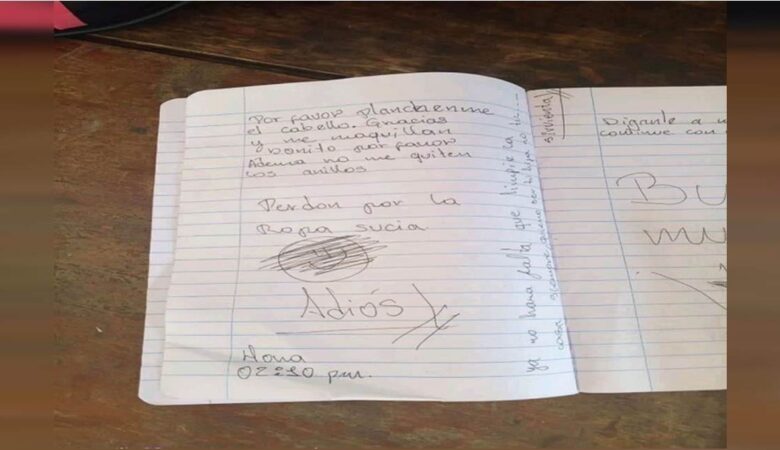 Por favor planchenme
el cabello. Gracias
y me maquillan
bonito por favor
Ademas no me quiten
los anillos
Perdon por la
Ropa sucia
Adiós
Hora
02:10 pm.
ya no hara falta que limpie la
casa siempre quiso ser tu hija no tu
sirvienta
Diganle a
continue con